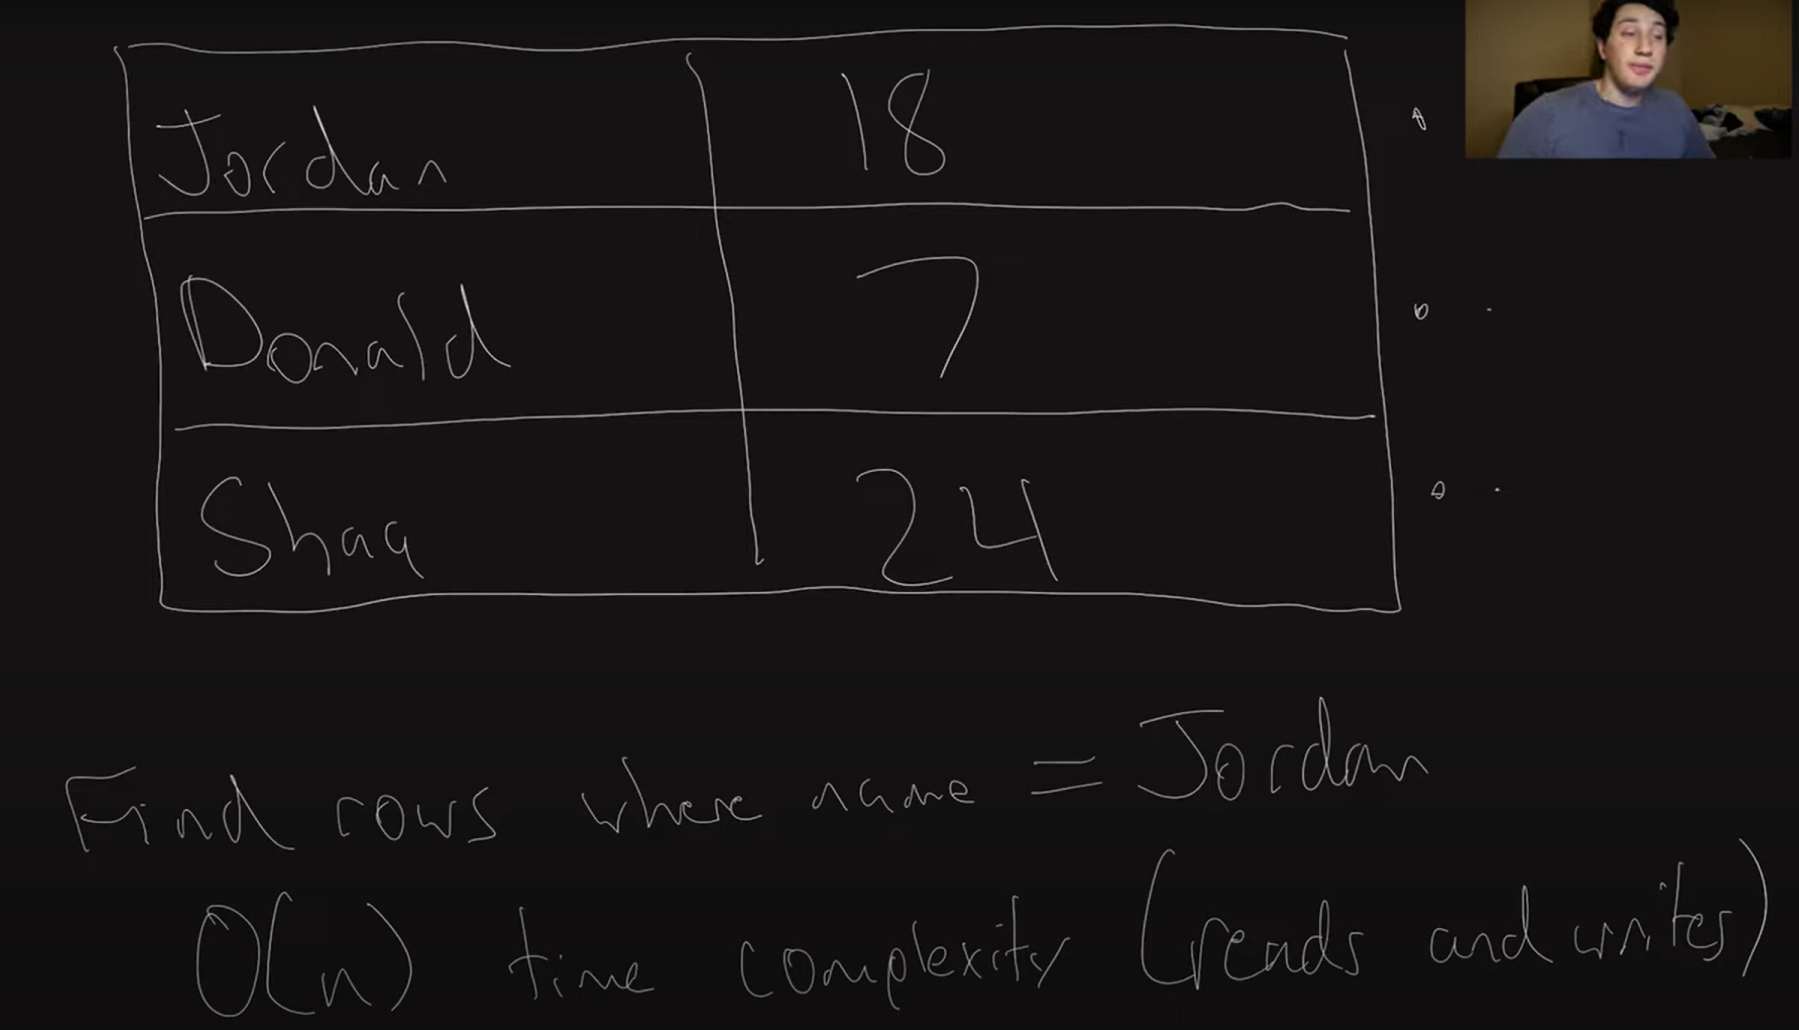 Jordan 18
Donald 7
Shaq 24
Find rows where name = Jordan
O(n) time complexity (reads and writes)